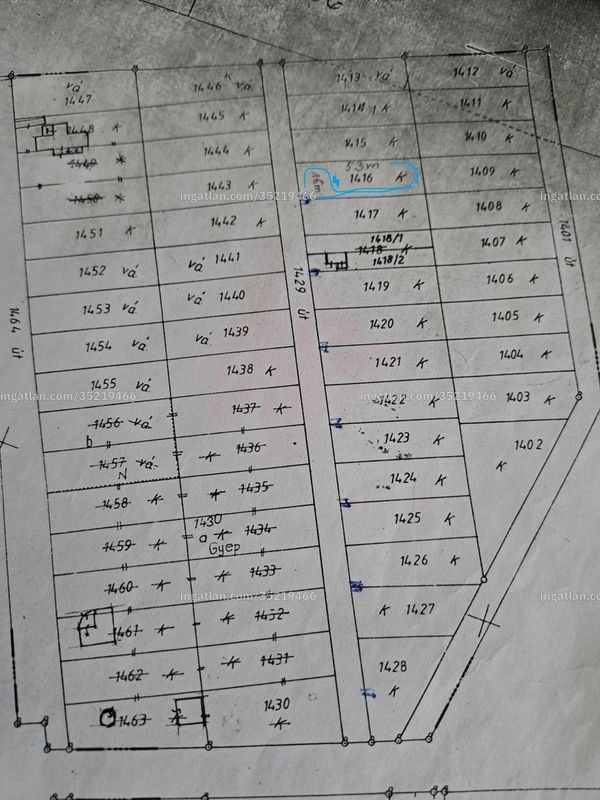 vá
1447
1448 K
1449
1450
1451 K
1452 vá
1453 vá
1454 vá
1455 vá
1456 vá
b
1457 vá
N
1458 K
1459 K
1460 K
1461 K
1462 K
1463 K
1464 út
1446 K vá
1445 K
1444 K
1443 K
1442 K
vá 1441
vá 1440
vá 1439
1438 K
1437 K
K 1436
K 1435
1430
a K 1434
Gyep
K 1433
K 1432
K 1431
1430
K
1429 út
1413 vá
1414 K
1415 K
53m
16m
1416 K
1417 K
1418/1
1418 K
1418/2
1419 K
1420 K
1421 K
1422 K
1423 K
1424 K
1425 K
1426 K
K 1427
1428
K
1412 vá
1411 K
1410 K
1409 K
1408 K
1407 K
1406 K
1405 K
1404 K
1403 K
1402
K
1401 út
ingatlan.com/35219466
ingatlan.com/35219466
ingatlan.com/35219466
ingatlan.com/35219466
ingatlan.com/35219466
ingatlan.com/35219466
ingatlan.com/35219466
ingatlan.com/35219466